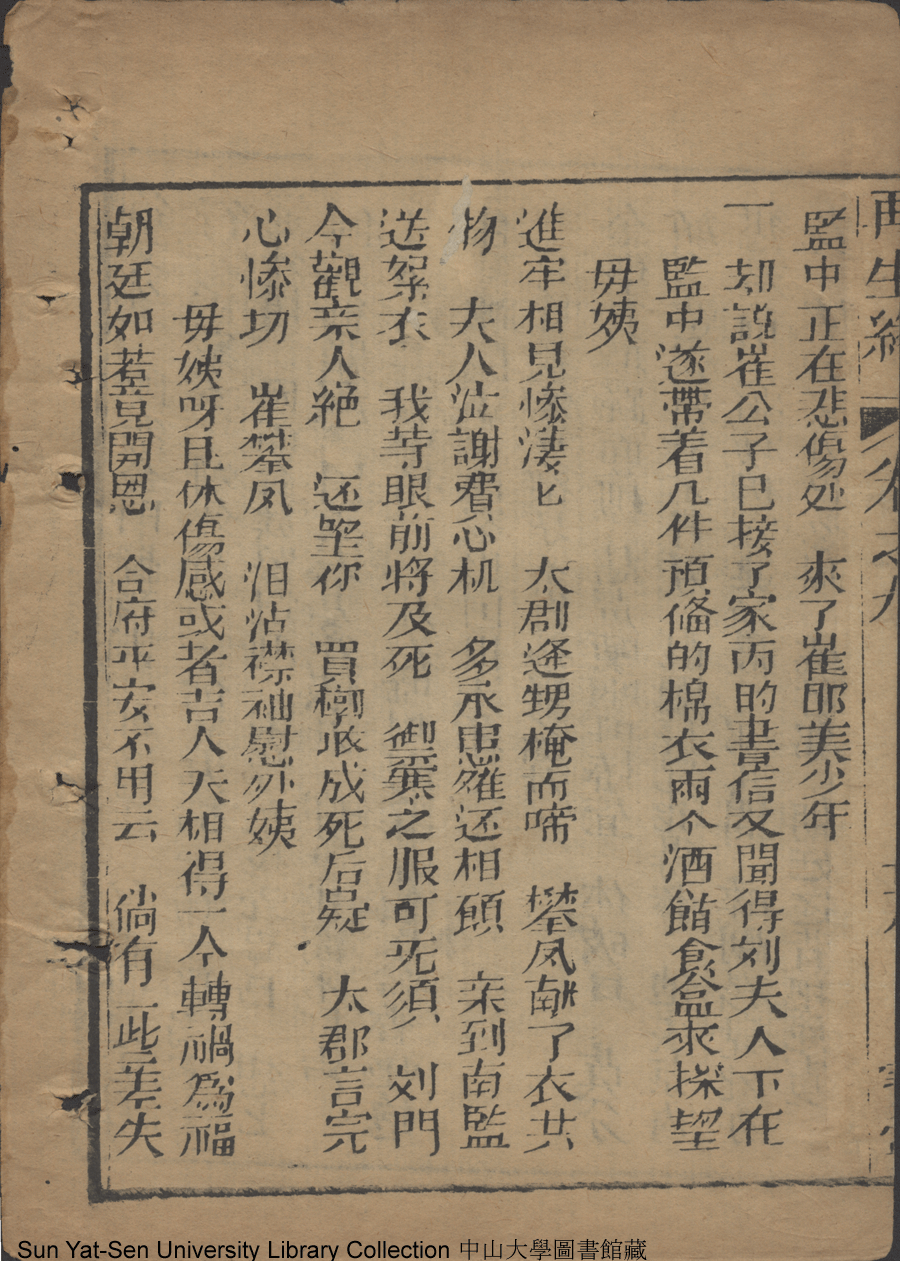 再生緣 卷之九
監中正在悲傷处 來了崔郎美少年
一 却說崔公子已接了家丙的書信又聞得刘夫人下在
監中遂带着几件預俻的棉衣兩个酒餚食盒來探望
毋姨
進牢相見慘淒匕 太郡逢甥掩而啼 攀凤献了衣共
物 夫人泣謝費心机 多承患难还相顧 亲到南監
送絮衣 我䓁眼前將及死 禦寒之服可旡須 刘門
今觀亲人絕 还望你 買棺收成死后 太郡言完
心慘切 崔攀凤 泪沾襟袖慰外姨
毋姨呀且休傷感或者吉人天相得一个轉禍為福
朝廷如若竟開恩 合府平安不用云 倘有一些差失
Sun Yat-Sen University Library Collection 中山大學圖書館藏